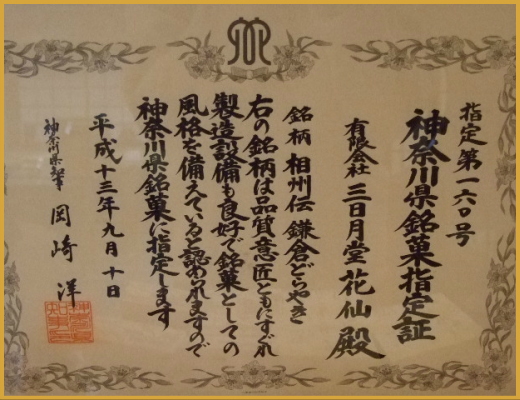 指定第一六〇号
神奈川県銘菓指定証
有限会社 三日月堂花仙殿
銘柄 相州伝 鎌倉どらやき
右の銘柄は品質意匠ともにすぐれ
製造設備も良好で銘菓としての
風格を備えていると認められますので
神奈川県銘菓に指定します
平成十三年九月十日
神奈川県知事 岡崎洋